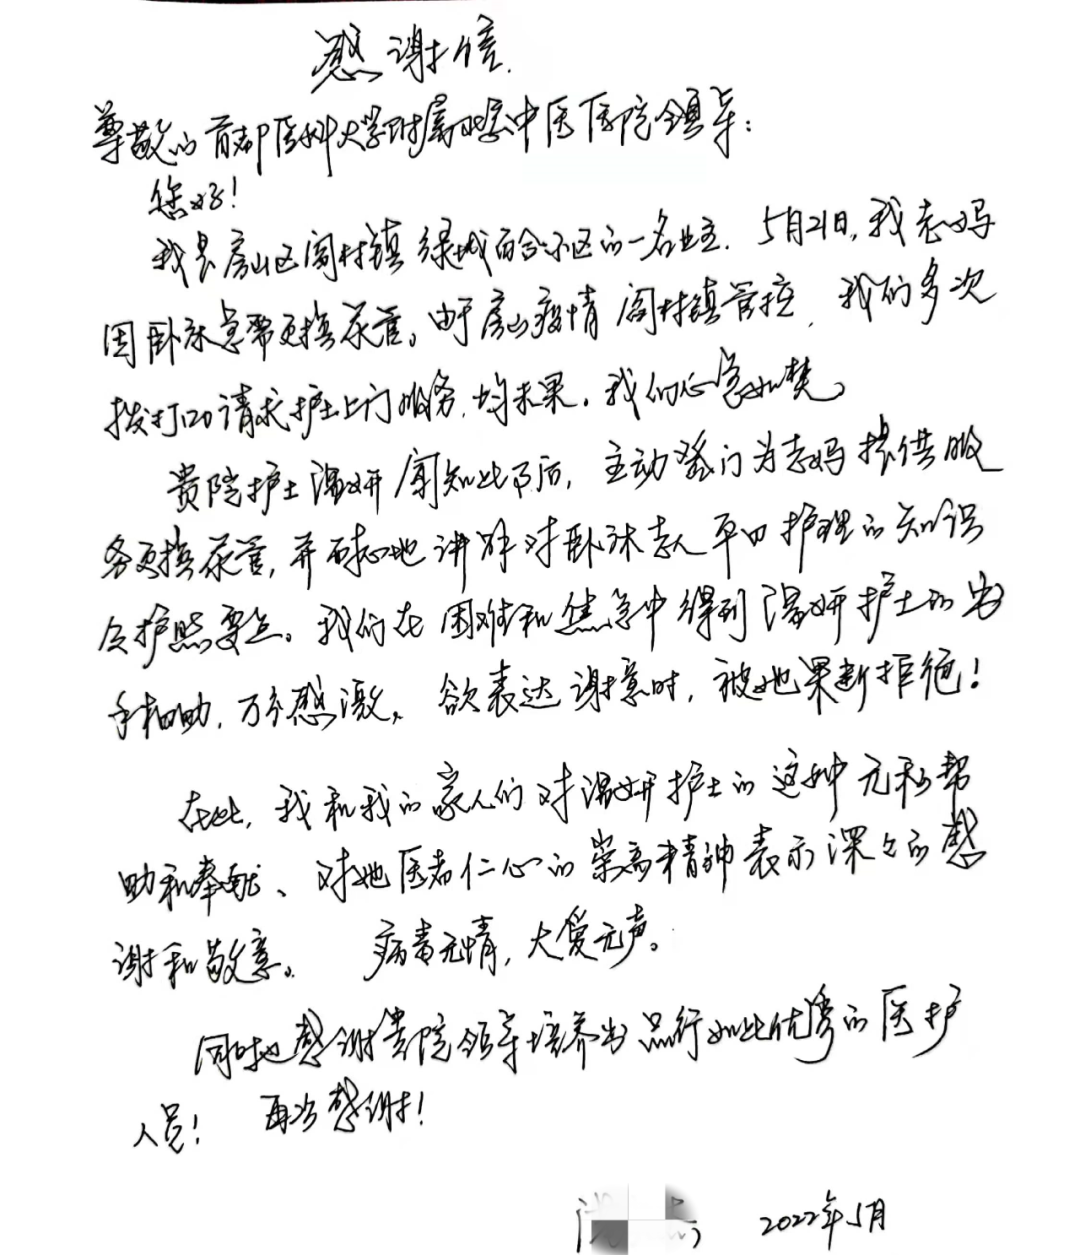 感谢信.
尊敬的首都医科大学附属北京中医医院领导：
您好！
我是房山区阎村镇绿城百合小区的一名业主. 5月21日, 我老妈
因卧床急需更换尿管。由于房山疫情阎村镇管控, 我们多次
拨打120请求护士上门服务, 均未果. 我们心急如焚。
贵院护士温妍闻知此事后, 主动登门为老妈提供服
务更换尿管, 并耐心地讲解对卧床老人平日护理的知识
及护照要点。我们在困难和焦急中得到温妍护士的出
手相助, 万分感激。欲表达谢意时, 被她果断拒绝！
在此, 我和我的家人们对温妍护士的这种无私帮
助和奉献、对她医者仁心的崇高精神表示深々的感
谢和敬意。 病毒无情, 大爱无声。
同时也感谢贵院领导培养出品行如此优秀的医护
人员！ 再次感谢！
2022年5月